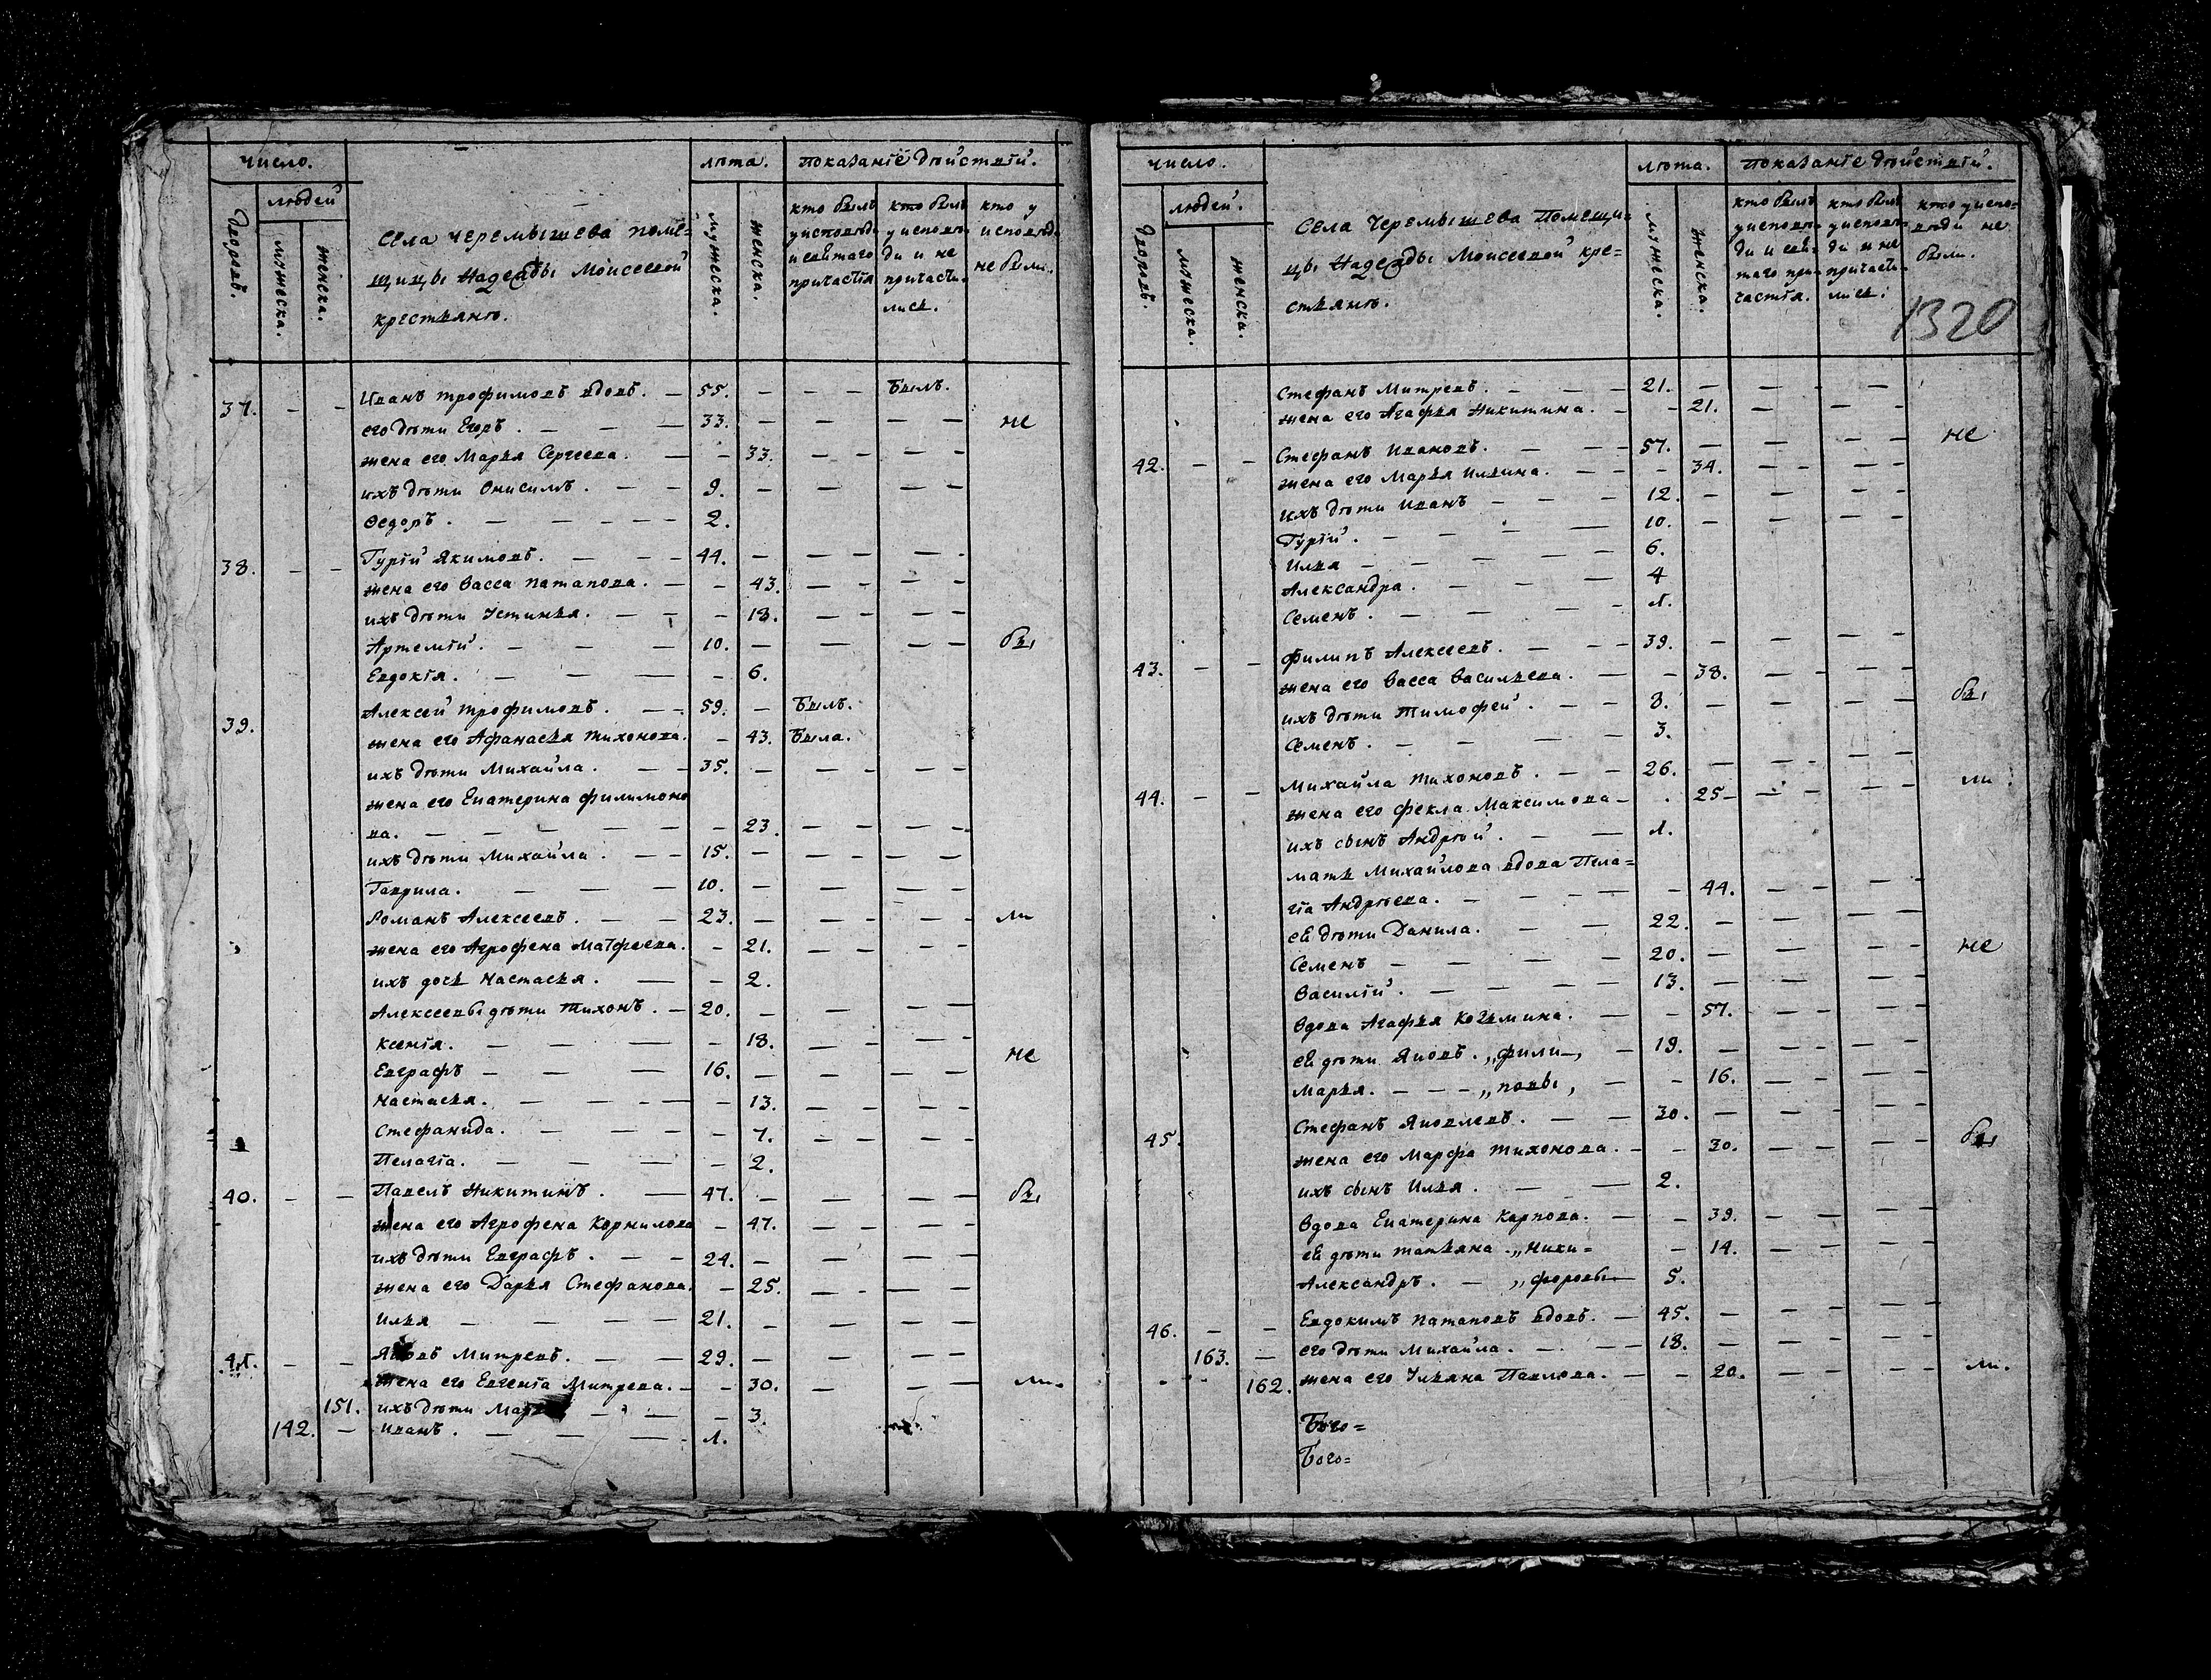 число.
людей
Дворовъ.
мужеска.
женска.
Села Черемышева поме=
щицы Надежды Моисеевой
крестьянъ.
лѣта.
мужеска.
женска.
показанїе дѣйствїй.
кто былъ
у исповѣ-
и святаго
причастїя
кто былъ
у исповѣ-
ди и не
причасти-
лись.
кто у
исповѣди
не были.
37. - - Иванъ Трофимовъ вдовъ. - 55. - - - Былъ.
его дѣти Егоръ. - - - 33. - - - - не
жена его Марья Сергеева. - - 33. - - - -
ихъ дѣти Онисимъ. - - 9. - - -
Ѳедоръ. - - - - - 2.
38. - - Гурїй Якимовъ. - - - 44. - - - - -
жена его Васса Патапова. - - 43. - - - -
ихъ дѣти Устинья. - - - 18. - - - -
Артемїй. - - - 10. - - - - бы
Евдокїя. - - - - 6.
39. Алексей Трофимовъ. - - 59. - Былъ.
жена его Афанасья Тихонова. - 43. Была.
ихъ дѣти Михайла. - - 35. - - - - -
жена его Екатерина Филимоно
ва. - - - - - - 23. - - - -
ихъ дѣти Михайла. - - 15. - - - - -
Гаврила. - - - 10. - - - - -
Романъ Алексеевъ. - - 23. - - - - - ли
жена его Агрофена Матфеева. - 21. - - - -
ихъ дочь Настасья. - - 2.
Алексеевы дѣти Тихонъ. - 20. - - - -
Ксенїя. - - - - 18. - - - - не
Евграфъ - - - 16. - - - - -
Настасья. - - - - - 13. - - - -
Стефанида. - - - - 7. - - - -
Пелагїа. - - - - 2.
40. - - Павелъ Никитинъ. - 47. - - - - бы
жена его Агрофена Корнилова - 47. - - - -
ихъ дѣти Евграфъ. - - 24. - - - -
жена его Дарья Стефанова. - 25. - - - -
Илья - - - - 21. - - - -
41. - - Яковъ Митревъ. - - 29. - - - - -
жена его Евгенїа Митрева. - - 30. - - - ли.
151. ихъ дѣти - - - 3.
142. - Иванъ. - - - 1.
число.
людей.
Дворовъ.
мужеска.
женска.
Села Черемышева Помещи=
цы Надежды Моисеевой кре=
стьянъ.
лѣта.
мужеска.
женска.
показанїе дѣйствїй.
кто былъ
у исповѣ-
ди и свя-
таго при-
частїя.
кто былъ
у исповѣ-
ди и не
причасти-
лись.
кто у испо-
вѣди не
были.
1320
Стефанъ Митревъ. - - - 21. - - - -
жена его Агафья Никитина. - - 21. - - -
42. - - Стефанъ Ивановъ. - - - 57. - - - - не
жена его Марья Ильина. - - - 34. - - - -
ихъ дѣти Иванъ - - - 12. - - - -
Гурїй. - - - - 10. - - - -
Илья - - - - - 6.
Александра. - - - 4
Семенъ. - - - - 1.
43. - - Филипъ Алексеевъ. - - - 39. - - - -
жена его Васса Васильева. - - 38. - - - -
ихъ дѣти Тимофей. - - 8. - - - - бы
Семенъ. - - - - 3.
44. - - Михайла Тихоновъ. - - 26. - - - - - ли
жена его Фекла Максимова - . 25 - - - - -
ихъ сынъ Андрѣй. - - 1.
мать Михайлова вдова Пела=
гїа Андрѣева. - - - - 44. - - - -
еѣ дѣти Данила. - - 22. - - - -
Семенъ - - - - 20. - - - - не
Василїй. - - - - 13. - - - -
Вдова Агафья Козьмина. - - 57. - - - -
еѣ дѣти Яковъ. „фили-, - 19. - - - -
Марья. - - - „повы, - - 16. - - - -
45. Стефанъ Яковлевъ. - - 30. - - - -
жена его Марфа Тихонова. - - 30. - - - - бы
ихъ сынъ Илья. - - 2.
Вдова Екатерина Карпова. - - 39. - - - -
еѣ дѣти Татьяна. „Ники= - 14. - - - -
Александръ. - „форовы - 5.
46. - - Евдокимъ Патаповъ вдовъ. - 45. - - - - -
163. - его дѣти Михайла. - - - 18. - - - - -
162. жена его Ульяна Павлова. - - 20. - - - - ли.
Бого=
Бого=